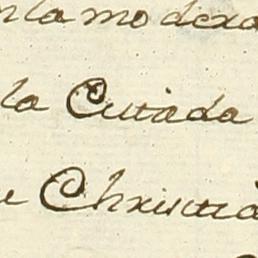 la modera
la Cittada
Christia